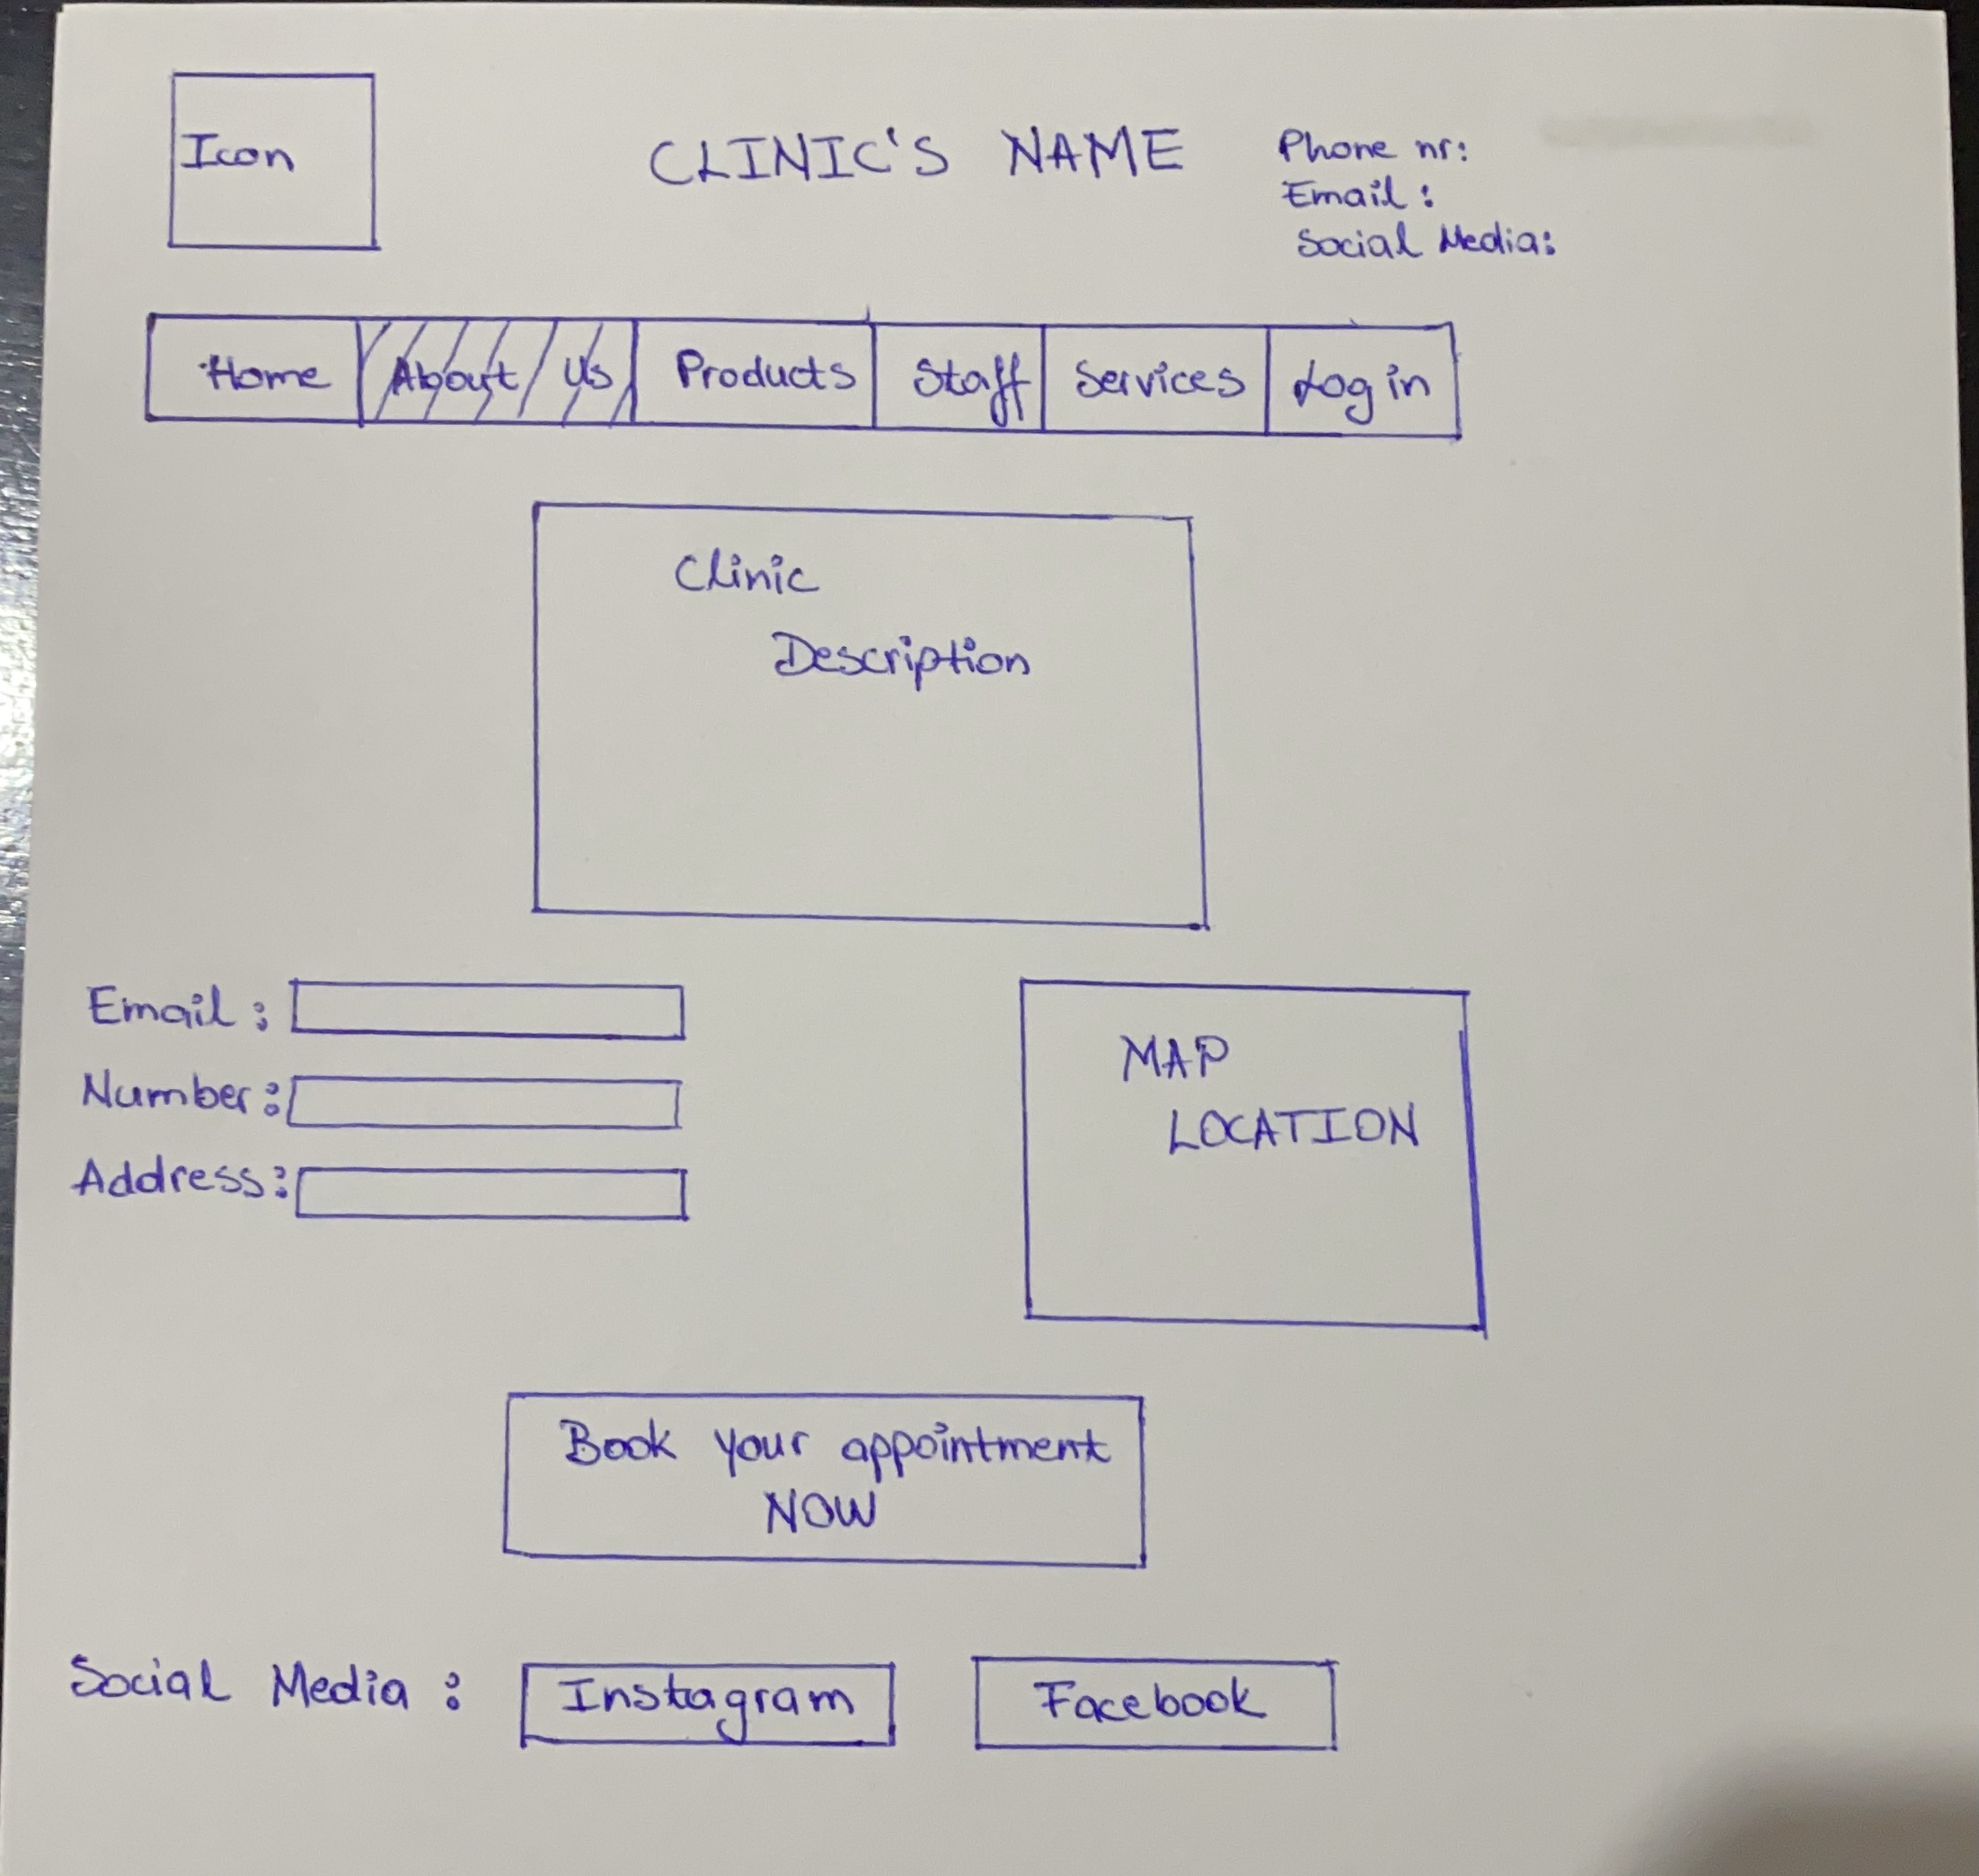 Icon
CLINIC'S NAME
Phone nr:
Email:
Social Media:
Home About Us Products Staff Services Log in
Clinic
Description
Email:
Number:
Address:
MAP
LOCATION
Book your appointment
NOW
Social Media: Instagram Facebook